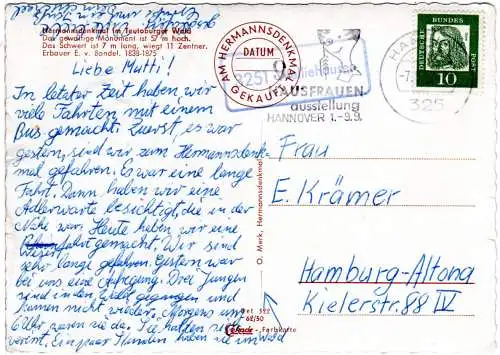 Hermannsdenkmal im Teutoburger Wald
Das gewaltige Monument ist 57 m hoch.
Das Schwert ist 7 m lang, wiegt 11 Zentner.
Erbauer E. v. Bandel. 1838-1875
Liebe Mutti!
In letzter Zeit haben wir
viele Fahrten mit einem
Bus gemacht. Zuerst, es war
gestern, sind wir zum Hermannsdenk-
mal gefahren. Es war eine lange
Fahrt. Dann haben wir eine
Adlerwarte besichtigt, die in der
Nähe war. Heute haben wir eine
fahrt gemacht. Wir sind
sehr lange gefahren. Gestern war
bei uns eine Aufregung. Drei Jungen
sind in den Wald gegangen und
kamen nicht wieder. Morgens um
6 Uhr waren sie da. Sie hatten sich
verirrt. Ein paar Stunden haben sie im Wald
AM HERMANNSDENKMAL
DATUM
GEKAUFT
3251
HAUSFRAUEN
ausstellung
HANNOVER 1.-9.9.
325
DEUTSCHE BUNDESPOST
10
O. Merk, Hermannsdenkmal
Det 522
62/50
Cekade-Farbkarte
Frau
E. Krämer
Hamburg-Altona
Kielerstr. 88 IV